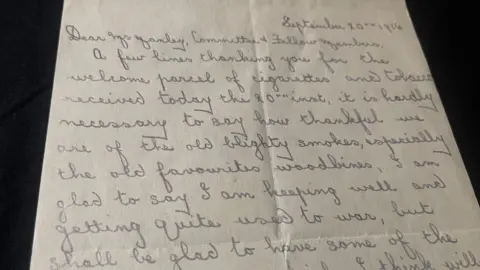 September 20th 1916
Dear Mr Manley, Committee & Fellow Members.
A few lines thanking you for the
welcome parcel of cigarettes and tobacco
received today the 20th inst, it is hardly
necessary to say how thankful we
are of the old blighty smokes, especially
the old favourites woodbines, I am
glad to say I am keeping well and
getting quite used to war, but
shall be glad to have some of the
I think will